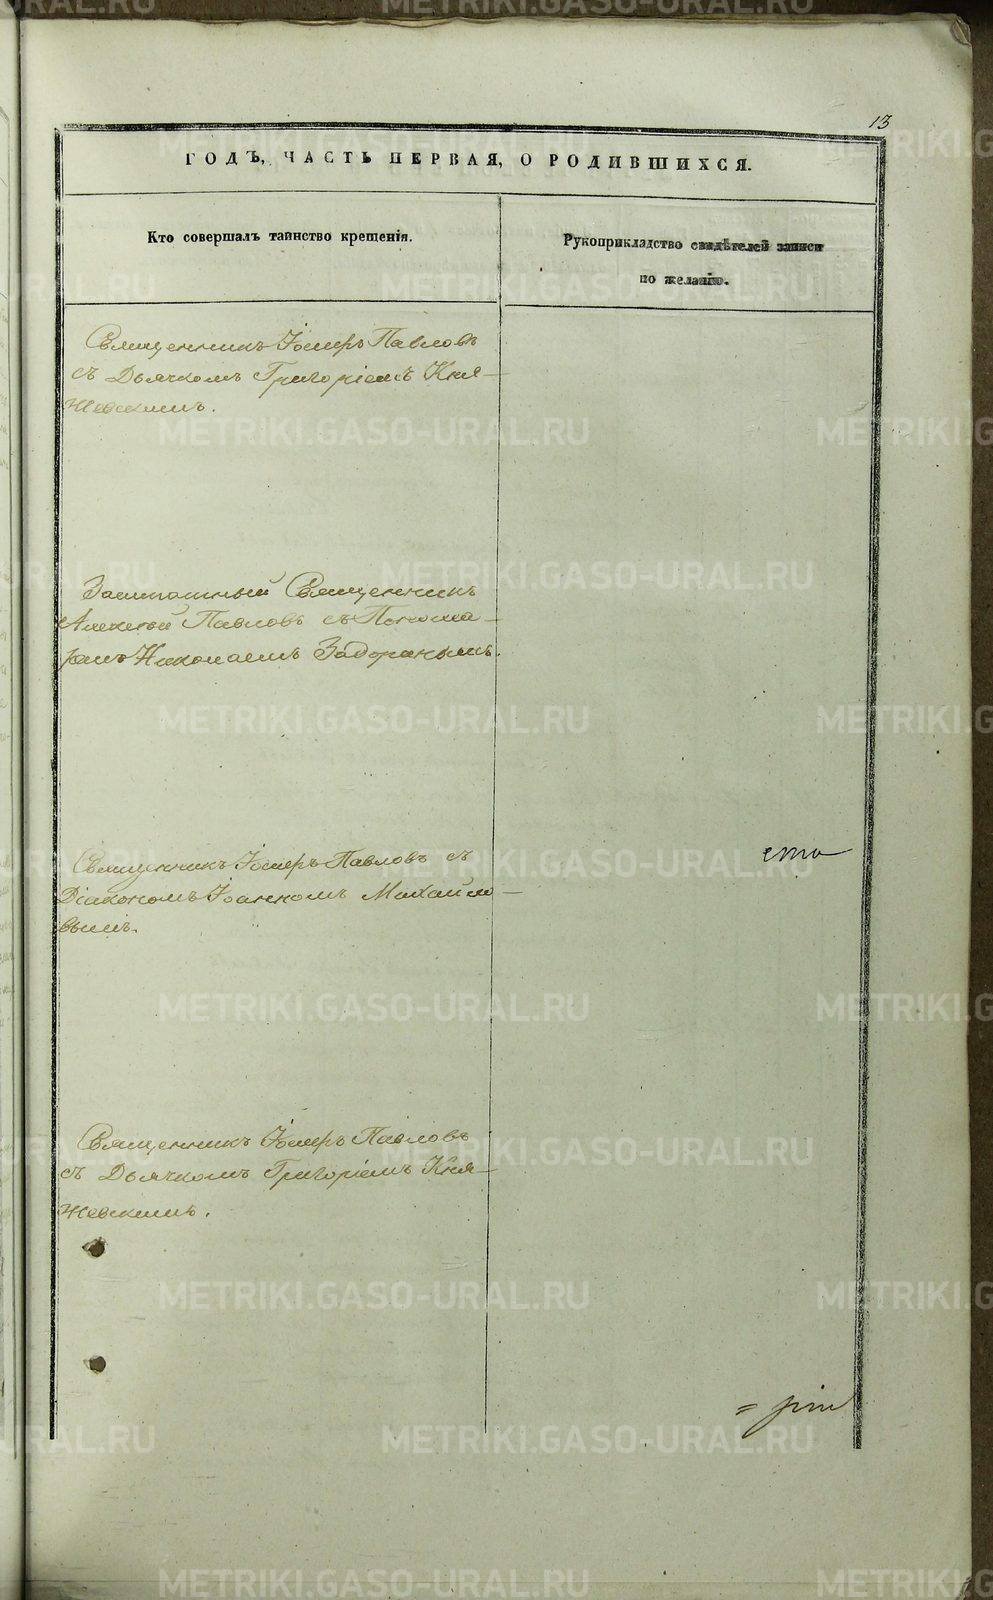 13
ГОДЪ, ЧАСТЬ ПЕРВАЯ, О РОДИВШИХСЯ.
Кто совершалъ таинство крещенія.
Рукоприкладство свидѣтелей записи
по желанію.
Священникъ Іосифъ Павловъ
съ Дьячкомъ Григоріемъ Кня-
жевскимъ.
Заштатный Священникъ
Алексѣй Павловъ съ Понома-
ремъ Николаемъ Задоринымъ.
Священникъ Іосифъ Павловъ съ
Діакономъ Іоанномъ Михайло-
вымъ.
Священникъ Іосифъ Павловъ
съ Дьячкомъ Григоріемъ Кня-
жевскимъ.
METRIKI.GASO-URAL.RU